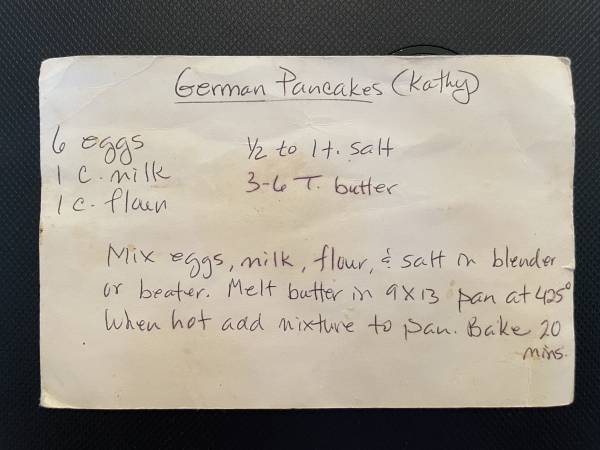 German Pancakes (Kathy)
6 eggs
1 c. milk
1 c. flour
1/2 to 1 t. salt
3-6 T. butter
Mix eggs, milk, flour, & salt in blender
or beater. Melt butter in 9x13 pan at 425°
When hot add mixture to pan. Bake 20
mins.